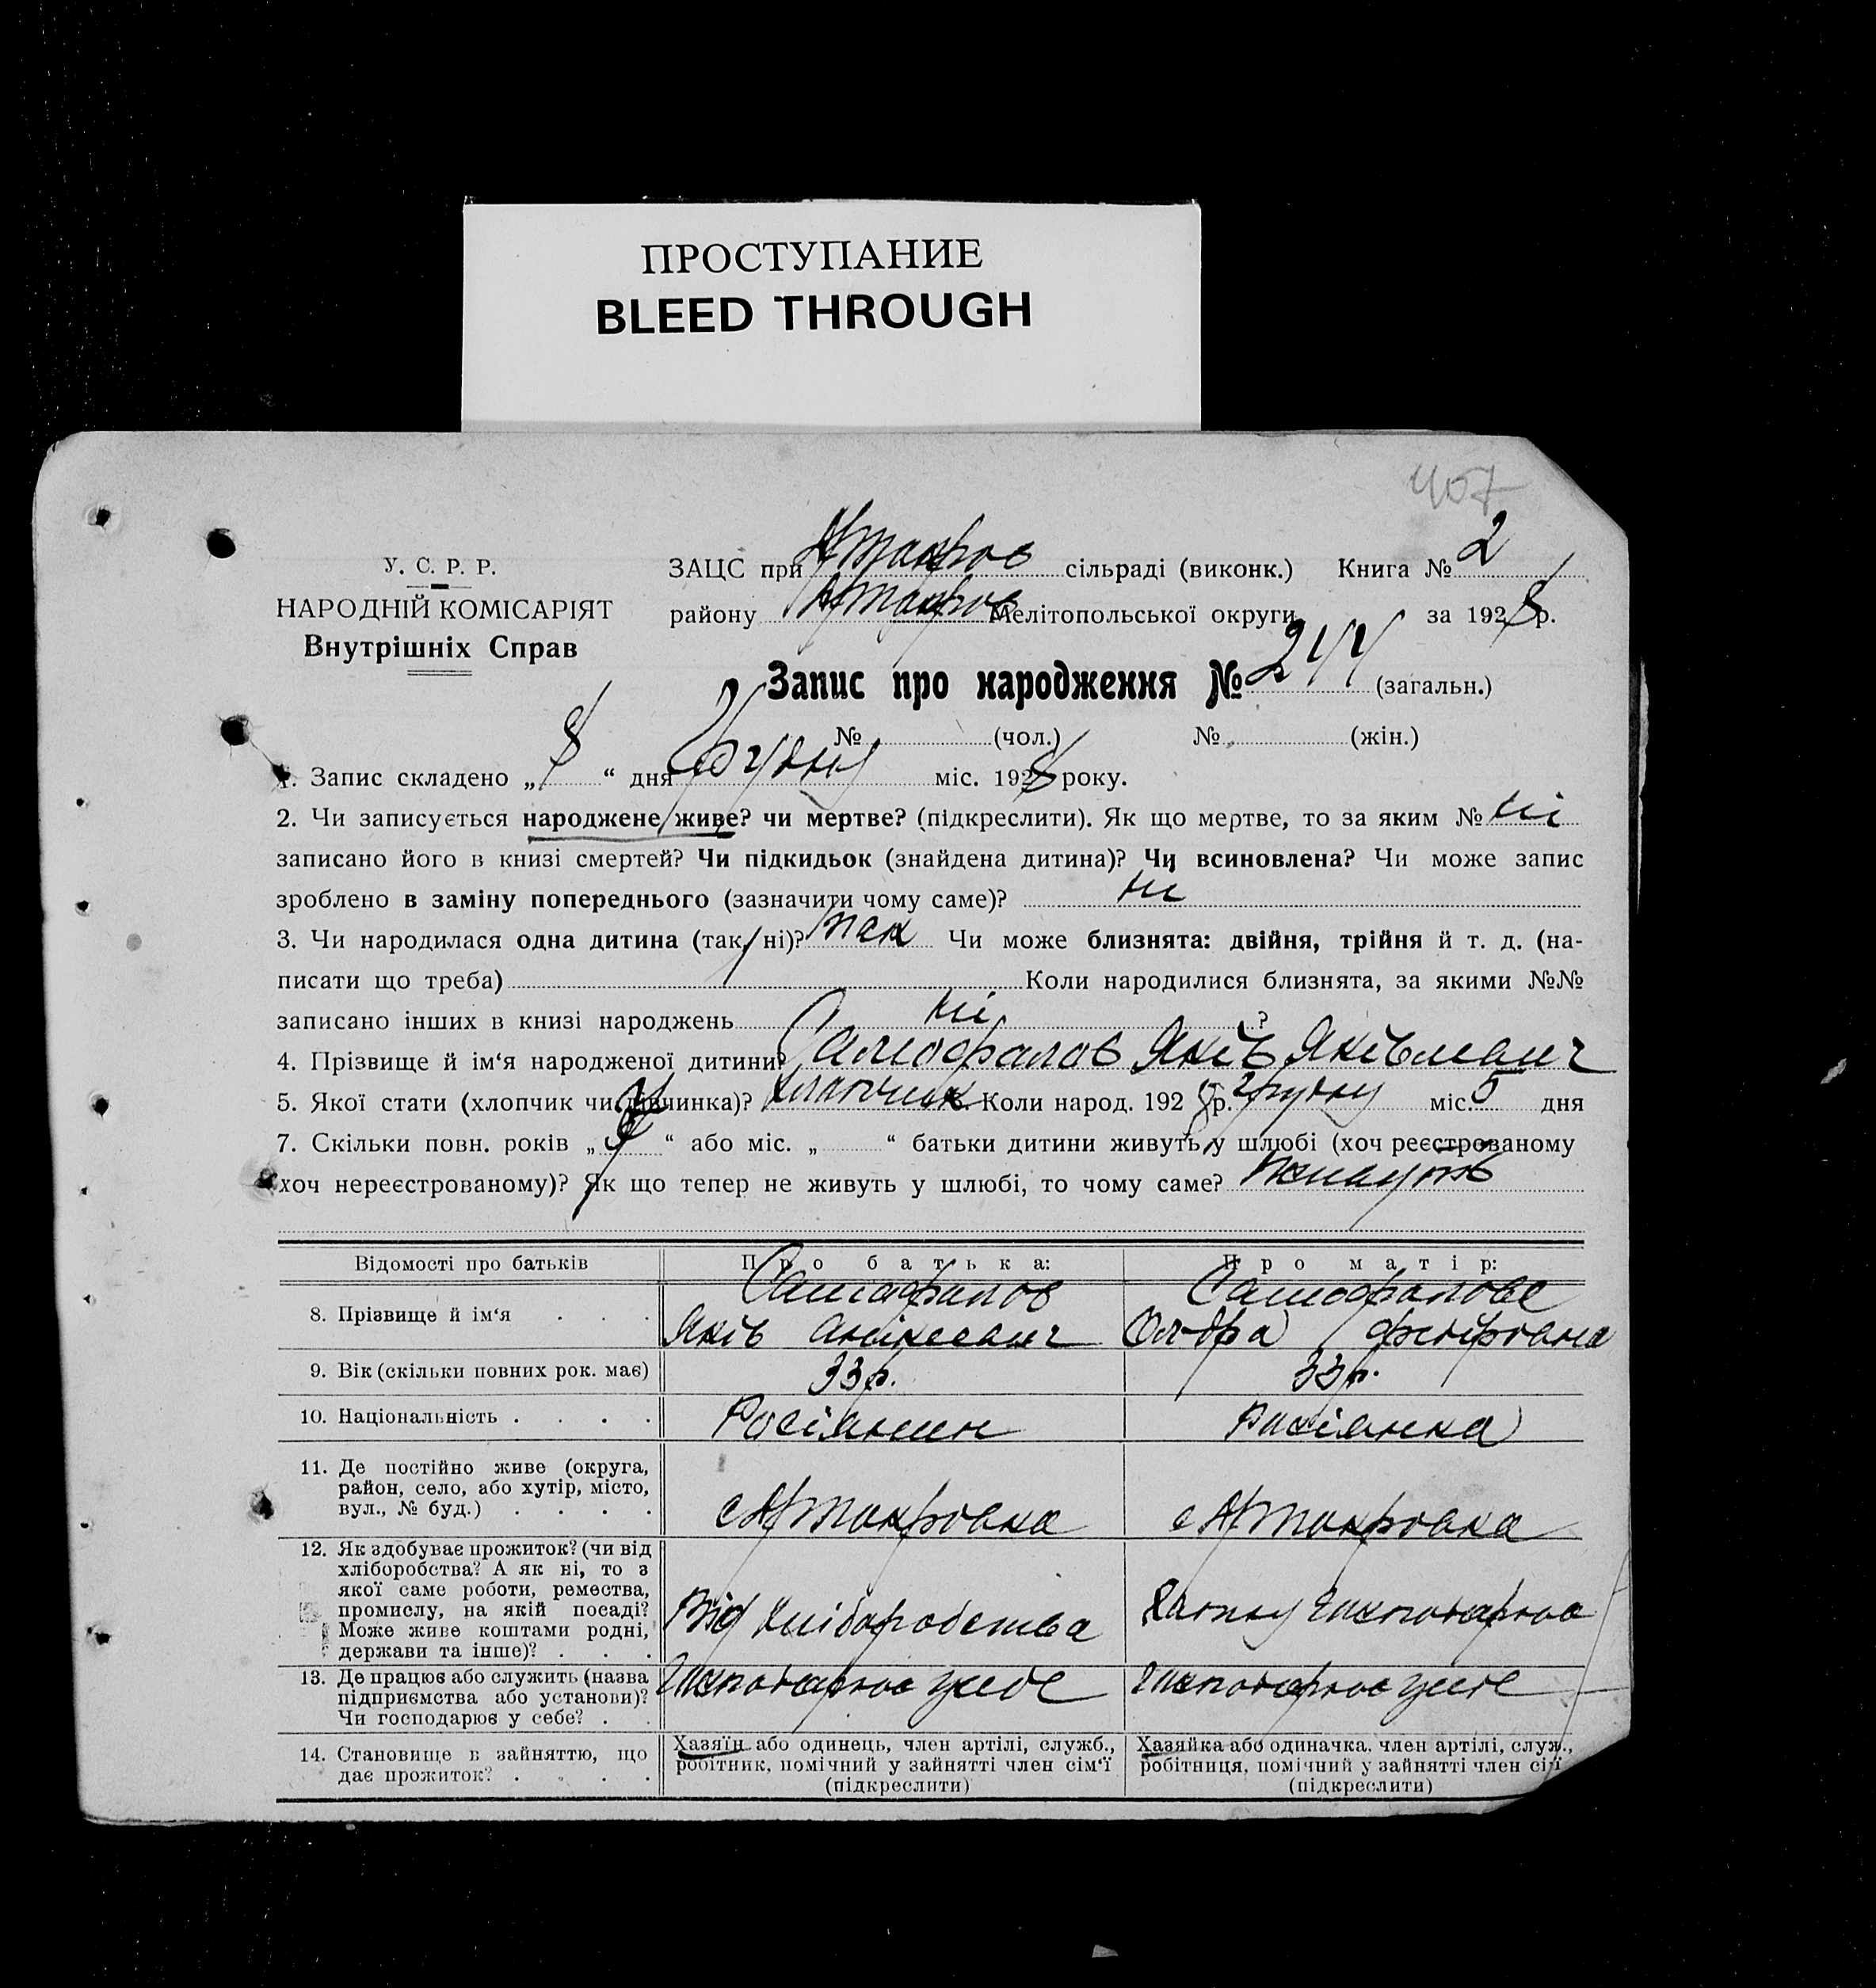 ПРОСТУПАНИЕ
BLEED THROUGH
407
У. С. Р. Р.
НАРОДНІЙ КОМІСАРІЯТ
Внутрішніх Справ
ЗАЦС при сільраді (виконк.) Книга № 2
району Мелітопольської округи за 1928 р.
Запис про народження № 244 (загальн.)
№ (чол.) № (жін.)
1. Запис складено „8“ дня Грудню міс. 1928 року.
2. Чи записується народжене живе? чи мертве? (підкреслити). Як що мертве, то за яким № ні
записано його в книзі смертей? Чи підкидьок (знайдена дитина)? Чи всиновлена? Чи може запис
зроблено в заміну попереднього (зазначити чому саме)? ні
3. Чи народилася одна дитина (так, ні)? так Чи може близнята: двійня, трійня й т. д. (на-
писати що треба) Коли народилися близнята, за якими №№
записано інших в книзі народжень ні ?
4. Прізвище й ім‘я народженої дитини? Самофалов Яків Яківлевич
5. Якої стати (хлопчик чи дівчинка)? хлапчик. Коли народ. 1928 р. грудню міс. 5 дня
7. Скільки повн. років „ “ або міс. „ “ батьки дитини живуть у шлюбі (хоч реєстрованому
хоч нереєстрованому)? Як що тепер не живуть у шлюбі, то чому саме?
Відомості про батьків
Про батька:
Про матір:
8. Прізвище й ім‘я . . .
Самофалов
Яків
Самофалова
9. Вік (скільки повних рок. має)
33 р.
33 р.
10. Національність . . . .
Росіянин
Росіянка
11. Де постійно живе (округа,
район, село, або хутір, місто,
вул., № буд.) . . . .
с
с
12. Як здобуває прожиток? (чи від
хліборобства? А як ні, то з
якої саме роботи, ремества,
промислу, на якій посаді?
Може живе коштами родні,
держави та інше)? . . .
Від хліборобства
13. Де працює або служить (назва
підприємства або установи)?
Чи господарює у себе? . .
14. Становище в зайняттю, що
дає прожиток? . . . .
Хазяїн або одинець, член артілі, служб.,
робітник, помічний у зайнятті член сім‘ї
(підкреслити)
Хазяйка або одиначка, член артілі, служ.,
робітниця, помічний у зайнятті член сім‘ї
(підкреслити)